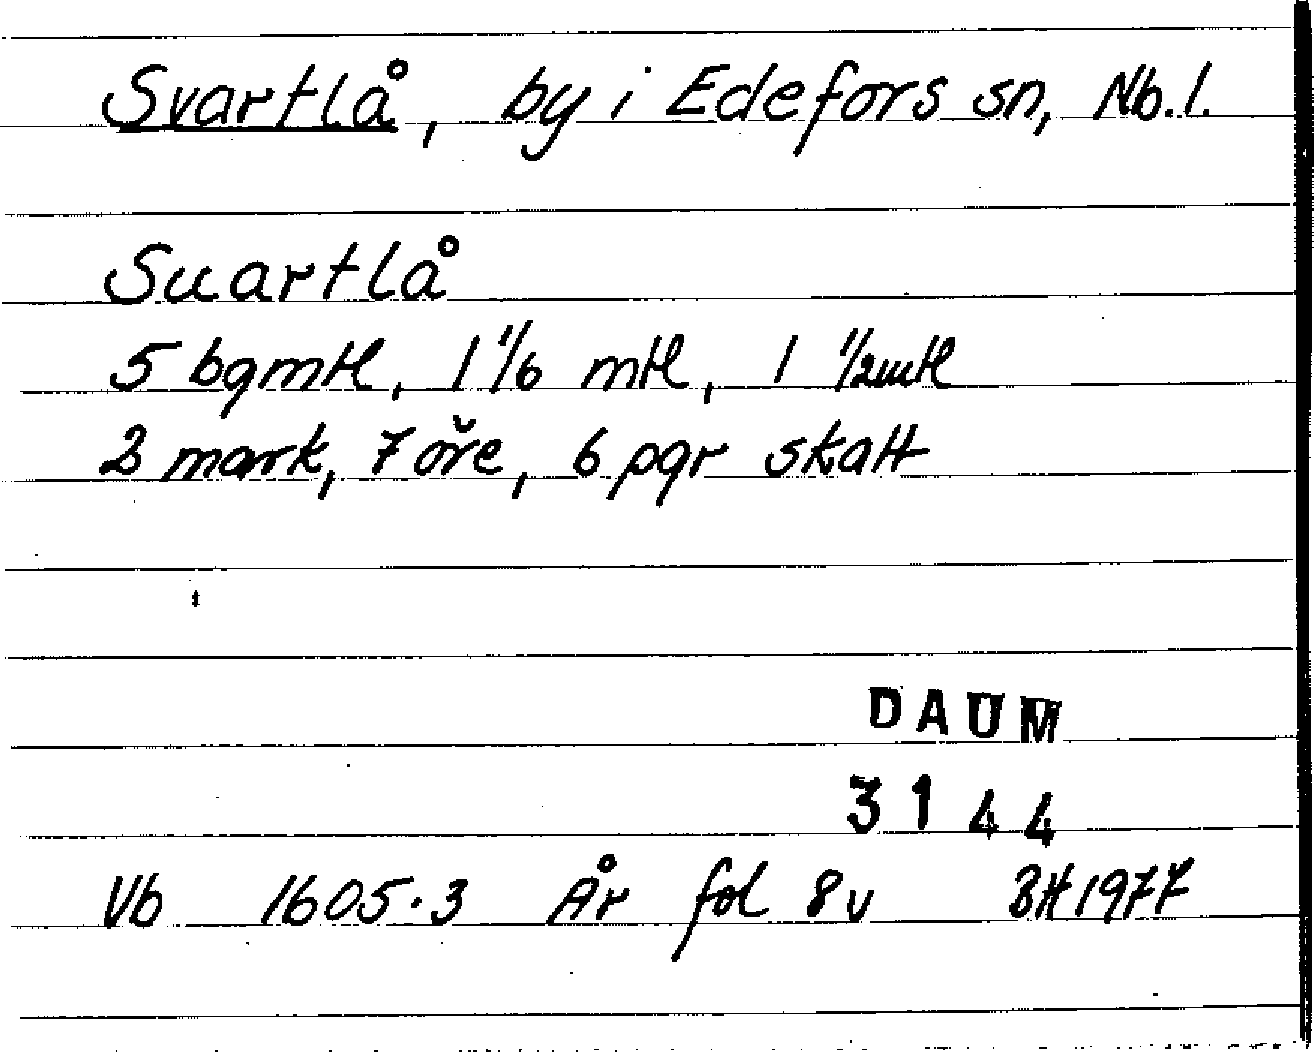 Svartlå, by i Edefors sn, Nb.l.
Suartlå
5 bgmtl, 1 1/6 mtl, 1 1/2mtl
2 mark, 7 øre, 6 pgr skatt
DAUM
3144
Vb 1605.3 År fol 8v BH 1977